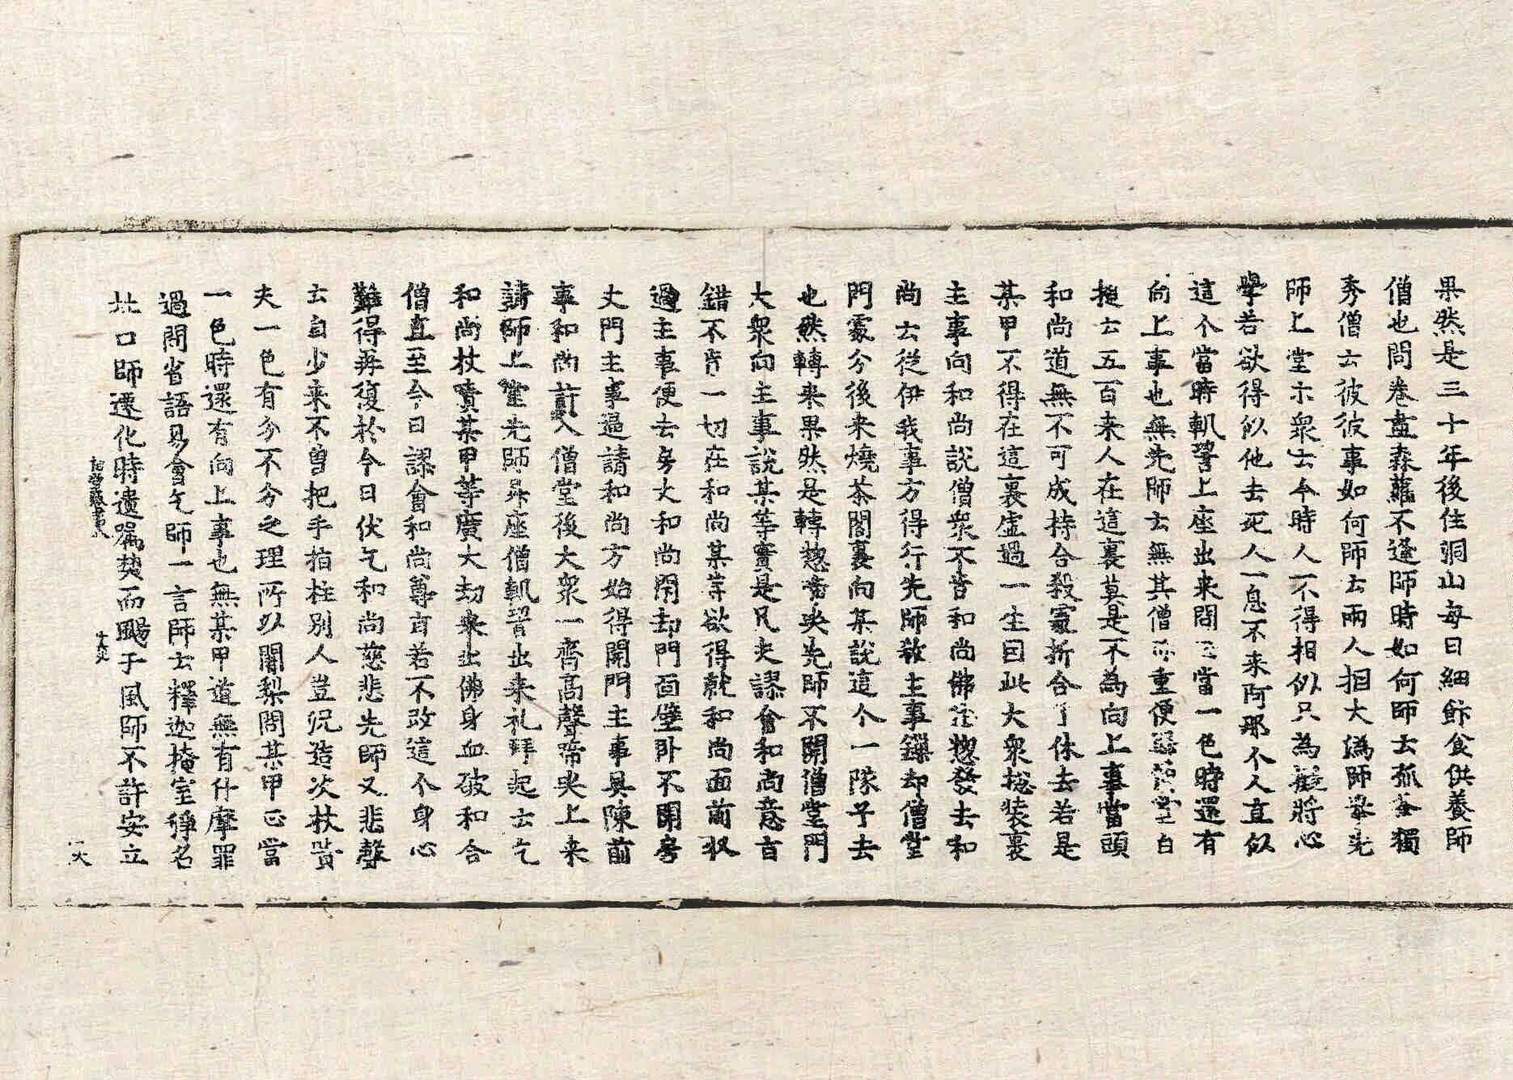 果然是三十年後住洞山每日細餙食供養師
僧也問卷盡森蘿不逢師時如何師云孤峯獨
秀僧云彼彼事如何師云兩人相大為師舉先
師上堂示衆云今時人不得相似只為癡將心
學若欲得似他去死人一息不来阿那个人直似
這个當時軏䂐上座出来問正當一色時還有
向上事也無先師云無其僧而重便歸僧堂白
搥云五百来人在這裏莫是不為向上事當頭
和尚道無不可成持合殺䆿折合了休去若是
某甲不得在這裏虛過一生因此大衆捴裝裹
主事向和尚說僧衆不肯和尚佛法惣發去和
尚云從伊我事方得行先師教主事鏁却僧堂
門䆿分後来燒茶閤裏向某說這个一隊子去
也然轉来果然是轉惣啼哭先師不開僧堂門
大衆向主事說某等實是凡夫謬會和尚意旨
錯不肯一切在和尚某等欲得就和尚面前収
過主事便去房丈和尚閇却門面壁卧不開房
丈門主事逼請和尚方始得開門主事具陳前
事和尚前入僧堂後大衆一齊高聲啼哭上来
請師上堂先師昇座僧軏䂐出来礼拜起云乞
和尚杖責某甲等廣大劫来出佛身血破和合
僧直至今日謬會和尚尊旨若不改這个身心
難得再復於今日伏乞和尚慈悲先師又悲聲
云自少来不曾把手指柱別人豈況造次杖責
夫一色有分不分之理所以闍梨問某甲正當
一色時還有向上事也無某甲道無有什摩罪
過問省語易會乞師一言師云釋迦掩室淨名
杜口師遷化時遺囑焚而颺于風師不許安立